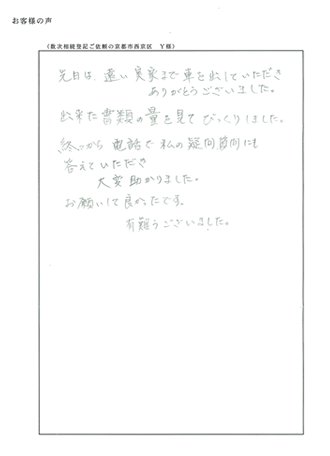 お客様の声
(数次相続登記ご依頼の京都市西京区 Y様)
先日は、遠い実家まで車を出していただき
ありがとうございました。
出来た書類の量を見てびっくりしました。
終始から電話で私の疑問箇所にも
答えていただき
大変助かりました。
お願いして良かったです。
有難うございました。